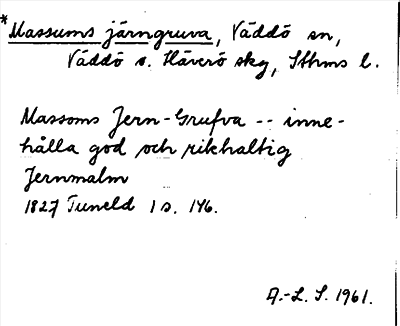 *Massums järngruva, Väddö sn,
Väddö o. Häverö skg, Sthms l.
Massoms Jern-Grufva -- inne-
hålla god och rikhaltig
Jernmalm
1827 Tuneld 1 s. 146.
A.-L. S. 1961.